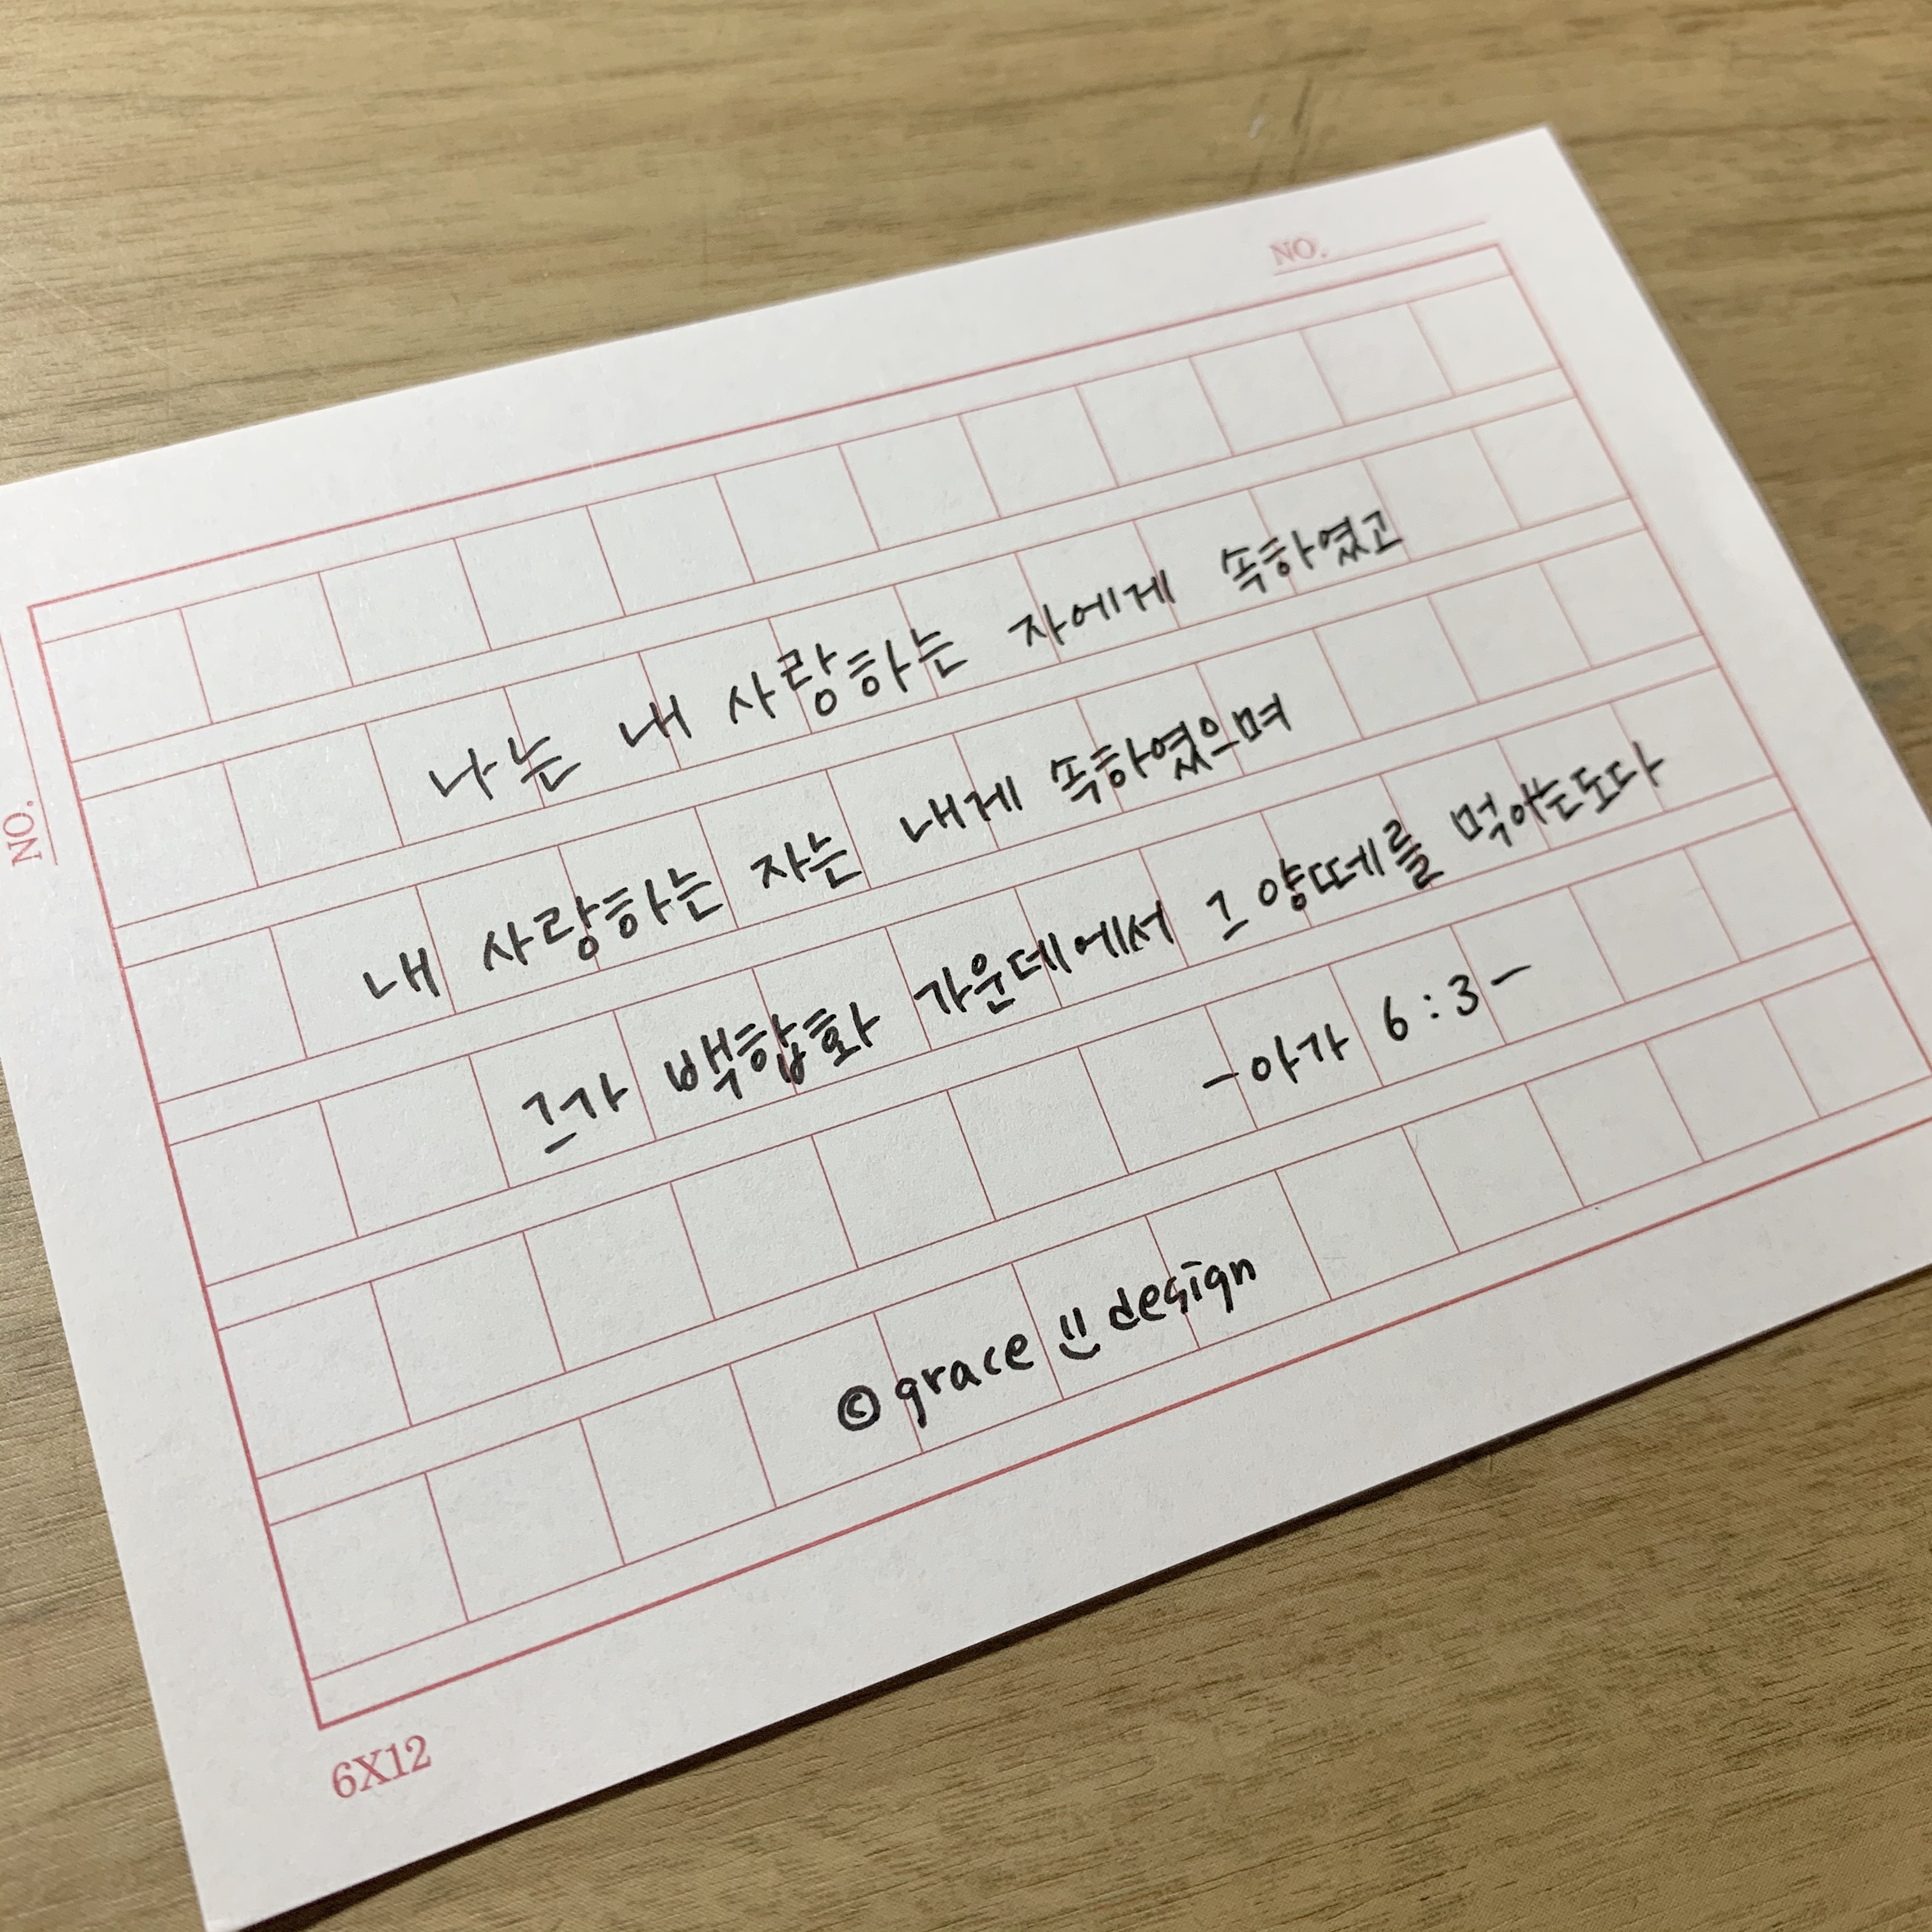 NO.
NO.
나는 내 사랑하는 자에게 속하였고
내 사랑하는 자는 내게 속하였으며
그가 백합화 가운데에서 그 양떼를 먹이는도다
-아가 6:3-
© grace design
6X12